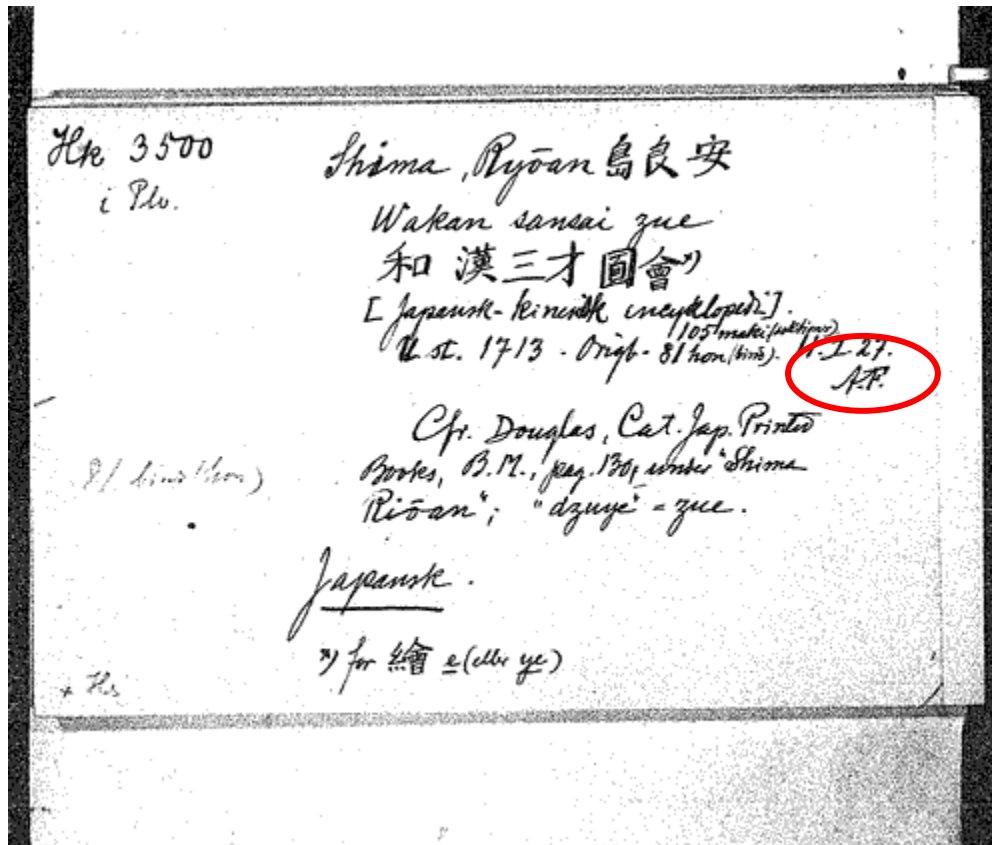 Hk 3500
i Plv.
Shima, Ryōan 島良安
Wakan sansai zue
和漢三才圖會*)
[Japansk-kinesisk encyklopedi].
105 maki
U. st. 1713 - Origb. - 81 hon (bind). 11.I.27.
A.F.
Cfr. Douglas, Cat. Jap. Printed
Books, B.M., pag. 130, under "Shima
Riōan"; "dzuye" = zue.
81 bind (hon)
Japansk.
*) for 繪 e (eller ye)
+ Hs